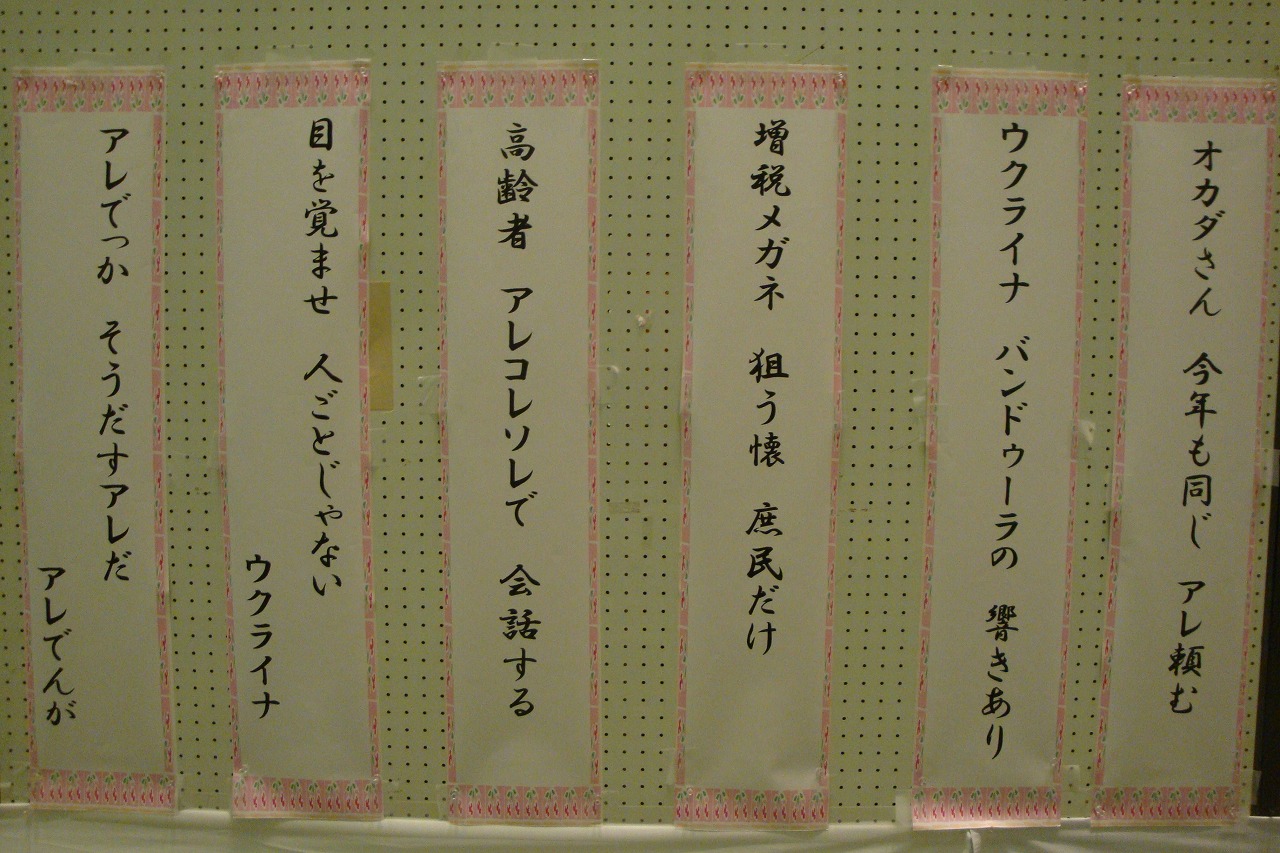 オカダさん　今年も同じ　アレ頼む
ウクライナ　バンドゥーラの　響きあり
増税メガネ　狙う懐　庶民だけ
高齢者　アレコレソレで　会話する
目を覚ませ　人ごとじゃない
ウクライナ
アレでっか　そうだすアレだ
アレでんが